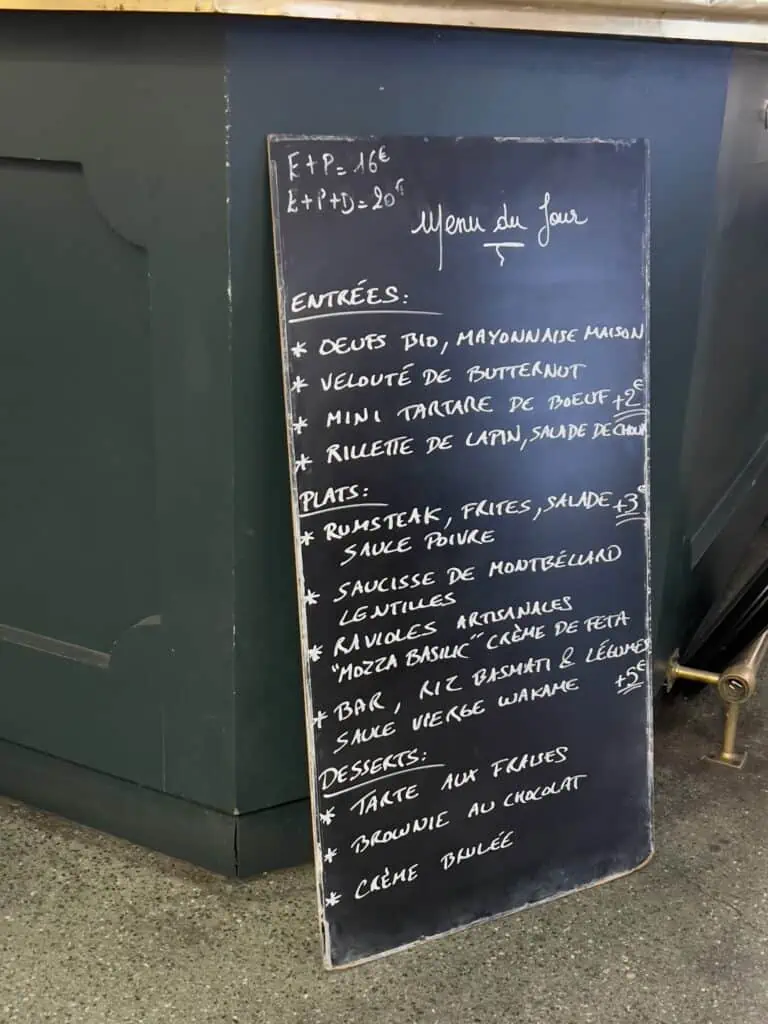 E+P=16€
E+P+D=20€
Menu du Jour
ENTRÉES:
* OEUFS BIO, MAYONNAISE MAISON
* VELOUTÉ DE BUTTERNUT
* MINI TARTARE DE BOEUF +2€
* RILLETTE DE LAPIN, SALADE DE CHOUX
PLATS:
* RUMSTEAK, FRITES, SALADE +3€
SAUCE POIVRE
* SAUCISSE DE MONTBÉLLARD
LENTILLES
* RAVIOLES ARTISANALES
"MOZZA BASILIC" CRÈME DE FETA
* BAR, RIZ BASMATI & LÉGUMES
SAUCE VIERGE WAKAME +5€
DESSERTS:
* TARTE AUX FRAISES
* BROWNIE AU CHOCOLAT
* CRÈME BRULÉE